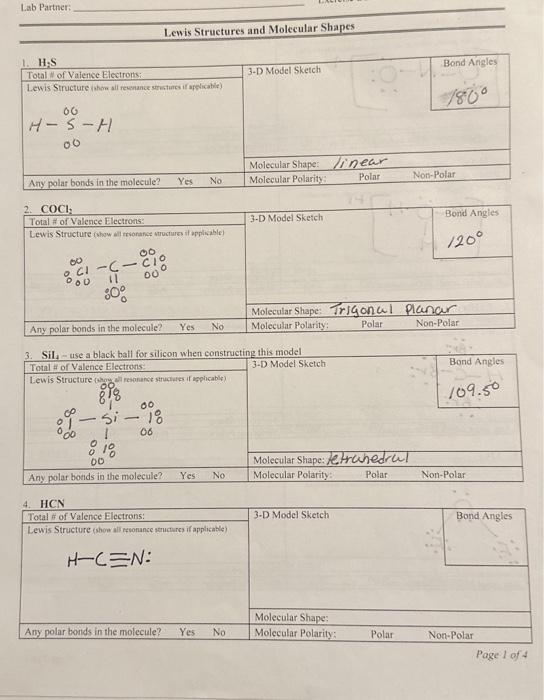 Lab Partner:
Lewis Structures and Molecular Shapes
1. H₂S
Total # of Valence Electrons:
Lewis Structure (show all resonance structures if applicable)
H-S-H
3-D Model Sketch
Bond Angles
180°
Molecular Shape: linear
Any polar bonds in the molecule? Yes No
Molecular Polarity: Polar Non-Polar
2. COCl₂
Total # of Valence Electrons:
Lewis Structure (show all resonance structures if applicable)
Cl-C-Cl
||
O
3-D Model Sketch
Bond Angles
120°
Molecular Shape: Trigonal Planar
Any polar bonds in the molecule? Yes No
Molecular Polarity: Polar Non-Polar
3. SiI₄ – use a black ball for silicon when constructing this model
Total # of Valence Electrons:
Lewis Structure (show all resonance structures if applicable)
I
|
I-Si-I
|
I
3-D Model Sketch
Bond Angles
109.5°
Molecular Shape: tetrahedral
Any polar bonds in the molecule? Yes No
Molecular Polarity: Polar Non-Polar
4. HCN
Total # of Valence Electrons:
Lewis Structure (show all resonance structures if applicable)
H-C≡N:
3-D Model Sketch
Bond Angles
Molecular Shape:
Any polar bonds in the molecule? Yes No
Molecular Polarity: Polar Non-Polar
Page 1 of 4